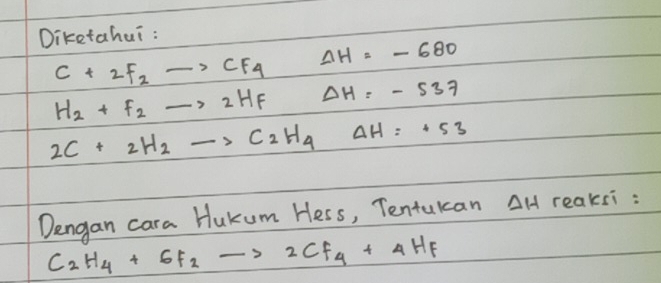 Diketahui :
C + 2F₂ —> CF₄ ΔH = - 680
H₂ + F₂ —> 2HF ΔH = - 537
2C + 2H₂ —> C₂H₄ ΔH = + 53
Dengan cara Hukum Hess, Tentukan ΔH reaksi :
C₂H₄ + 6F₂ —> 2CF₄ + 4HF